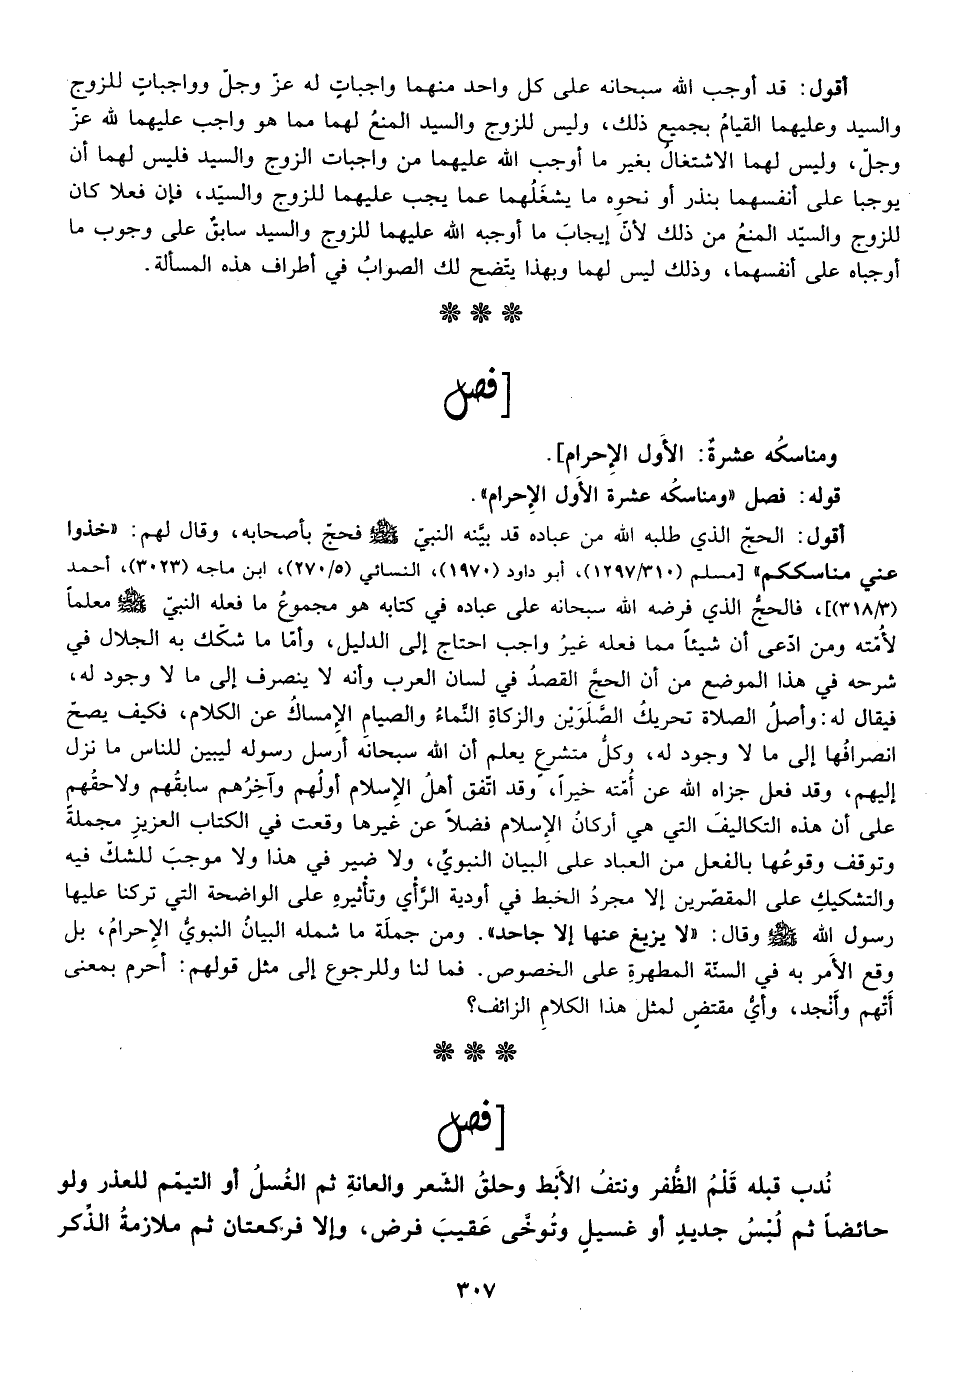 أقول: قد أوجب الله سبحانه على كل واحد منهما واجباتٍ له عزّ وجلّ وواجباتٍ للزوج
والسيد وعليهما القيامُ بجميع ذلك، وليس للزوج والسيد المنعُ لهما مما هو واجب عليهما لله عزّ
وجلّ، وليس لهما الاشتغالُ بغير ما أوجب الله عليهما من واجبات الزوج والسيد فليس لهما أن
يوجبا على أنفسهما بنذر أو نحوِه ما يشغَلُهما عما يجب عليهما للزوج والسيّد، فإن فعلا كان
للزوج والسيّد المنعُ من ذلك لأنّ إيجابَ ما أوجبه الله عليهما للزوج والسيد سابقٌ على وجوب ما
أوجباه على أنفسهما، وذلك ليس لهما وبهذا يتّضح لك الصوابُ في أطراف هذه المسألة.
❊ ❊ ❊
[فصل
ومناسكُه عشرةٌ: الأَول الإحرام].
قوله: فصل «ومناسكُه عشرة الأول الإحرام».
أقول: الحجّ الذي طلبه الله من عباده قد بيَّنه النبيّ ﷺ فحجّ بأصحابه، وقال لهم: «خذوا
عني مناسككم» [مسلم (١٢٩٧/٣١٠)، أبو داود (١٩٧٠)، النسائي (٢٧٠/٥)، ابن ماجه (٣٠٢٣)، أحمد
(٣١٨/٣)]، فالحجُّ الذي فرضه الله سبحانه على عباده في كتابه هو مجموعُ ما فعله النبيّ ﷺ معلماً
لأمّته ومن ادّعى أن شيئاً مما فعله غيرُ واجب احتاج إلى الدليل، وأمّا ما شكّك به الجلال في
شرحه في هذا الموضع من أن الحجَّ القصدُ في لسان العرب وأنه لا ينصرف إلى ما لا وجود له،
فيقال له: وأصلُ الصلاة تحريكُ الصَّلَوَيْن والزكاةِ النَّماءُ والصيامِ الإمساكُ عن الكلام، فكيف يصحّ
انصرافُها إلى ما لا وجود له، وكلُّ متشرعٍ يعلم أن الله سبحانه أرسل رسوله ليبين للناس ما نزل
إليهم، وقد فعل جزاه الله عن أُمّته خيراً، وقد اتّفق أهلُ الإسلام أولُهم وآخِرُهم سابقُهم ولاحقُهم
على أن هذه التكاليفَ التي هي أركانُ الإسلام فضلاً عن غيرها وقعت في الكتاب العزيزِ مجملةً
وتوقف وقوعُها بالفعل من العباد على البيان النبويِّ، ولا ضير في هذا ولا موجبَ للشكّ فيه
والتشكيكِ على المقصّرين إلا مجردُ الخبط في أودية الرَّأْي وتأثيرهِ على الواضحة التي تركنا عليها
رسول الله ﷺ وقال: «لا يزيغ عنها إلا جاحد». ومن جملَة ما شمله البيانُ النبويُّ الإحرامُ، بل
وقع الأَمر به في السنّة المطهرةِ على الخصوص. فما لنا وللرجوع إلى مثل قولهم: أحرم بمعنى
أَتْهم وأَنْجد، وأيُّ مقتضٍ لمثل هذا الكلامِ الزائف؟
❊ ❊ ❊
[فصل
نُدب قبله قَلْمُ الظُّفر ونتفُ الأَبط وحلقُ الشّعر والعانةِ ثم الغُسلُ أو التيمّم للعذر ولو
حائضاً ثم لُبْسُ جديدٍ أو غسيلٍ وتُوخَّى عَقيبَ فرض، وإلا فركعتان ثم ملازمةُ الذِّكر
٣٠٧